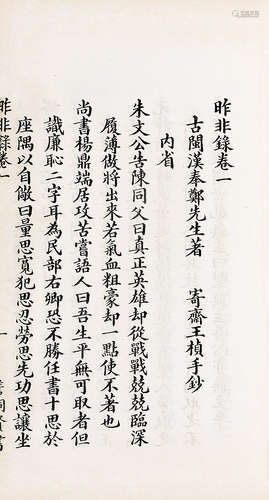 昨非錄卷一
古閩漢奉鄭先生著 寄齋王楨手鈔
內省
朱文公告陳同父曰真正英雄却從戰戰兢兢臨深
履薄做將出來若氣血粗豪却一點使不著也
尚書楊鼎端居攻苦嘗語人曰吾生平無可取者但
識廉恥二字耳為民部右卿恐不勝任書十思於
座隅以自儆曰量思寬犯思忍勞思先功思讓坐
昨非錄卷一 一